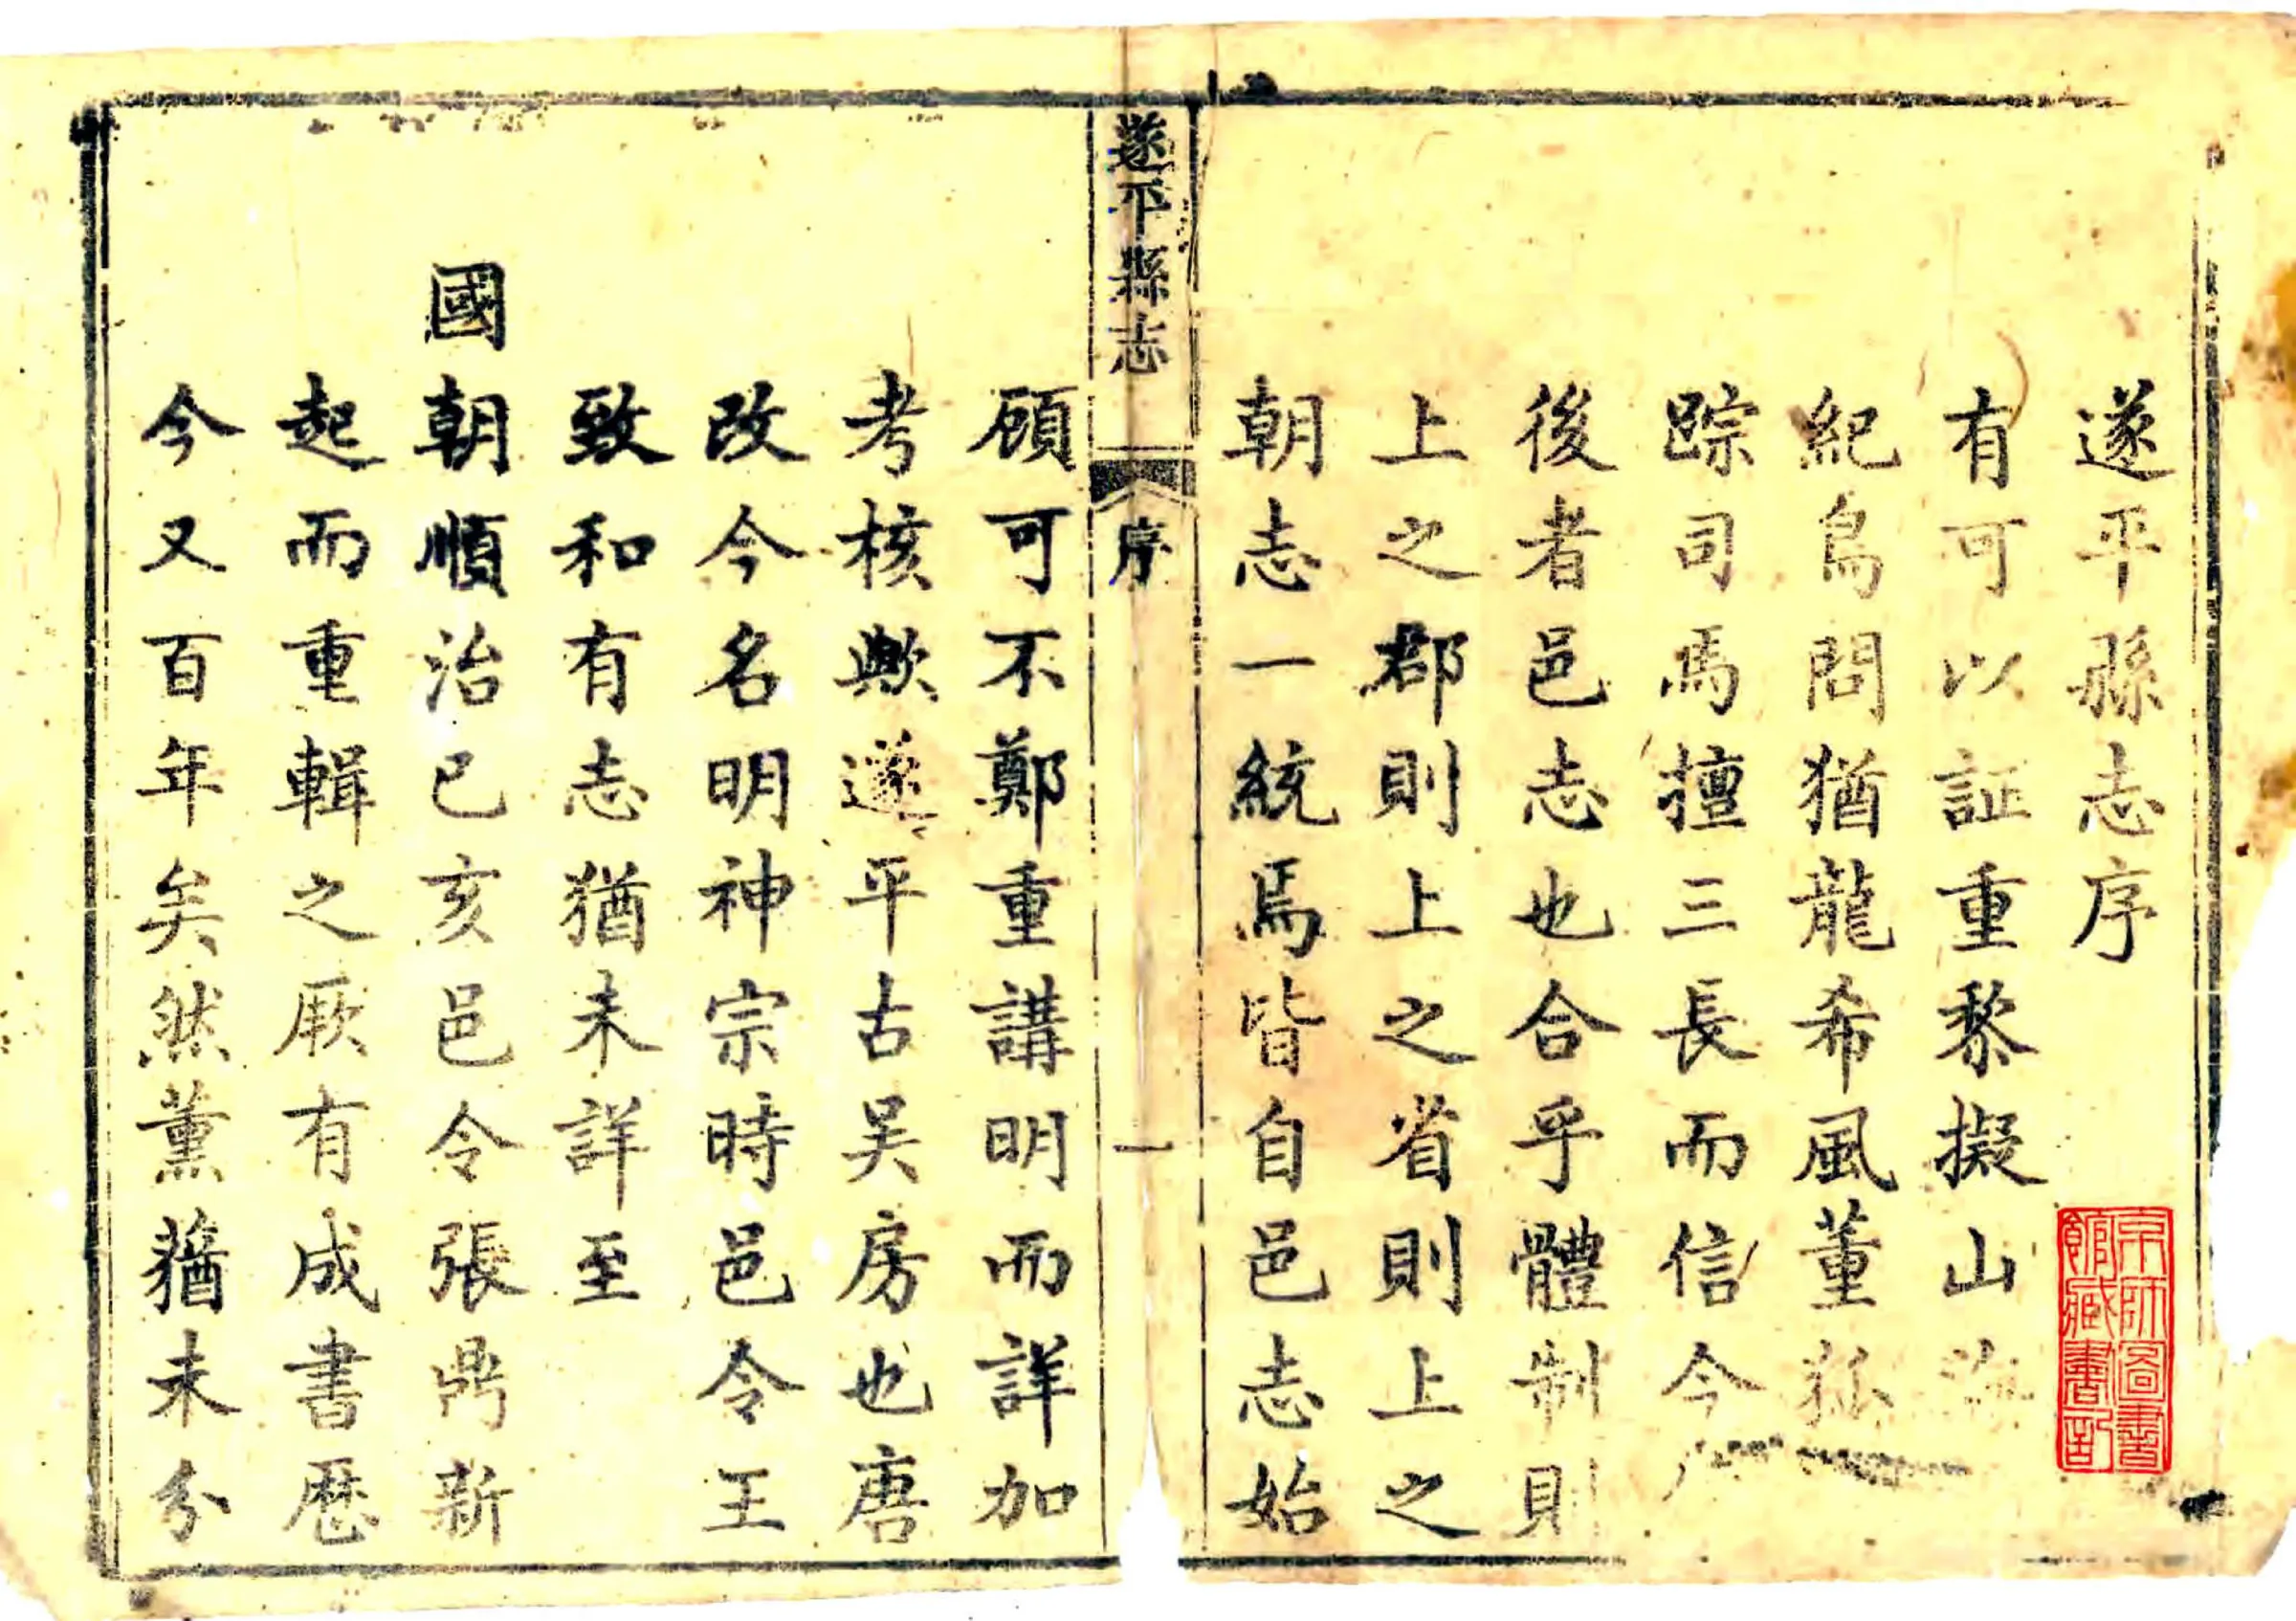 遂平縣志序
有可以証重黎擬山海
紀鳥問猶龍希風董狐
踪司馬擅三長而信今
後者邑志也合乎體制則
上之郡則上之省則上之
朝志一統焉皆自邑志始
遂平縣志
序
一
顧可不鄭重講明而詳加
考核歟遂平古吴房也唐
改今名明神宗時邑令王
致和有志猶未詳至
國朝順治已亥邑令張鼎新
起而重輯之厥有成書歴
今又百年矣然薰蕕猶未分
京師圖書
館藏書記